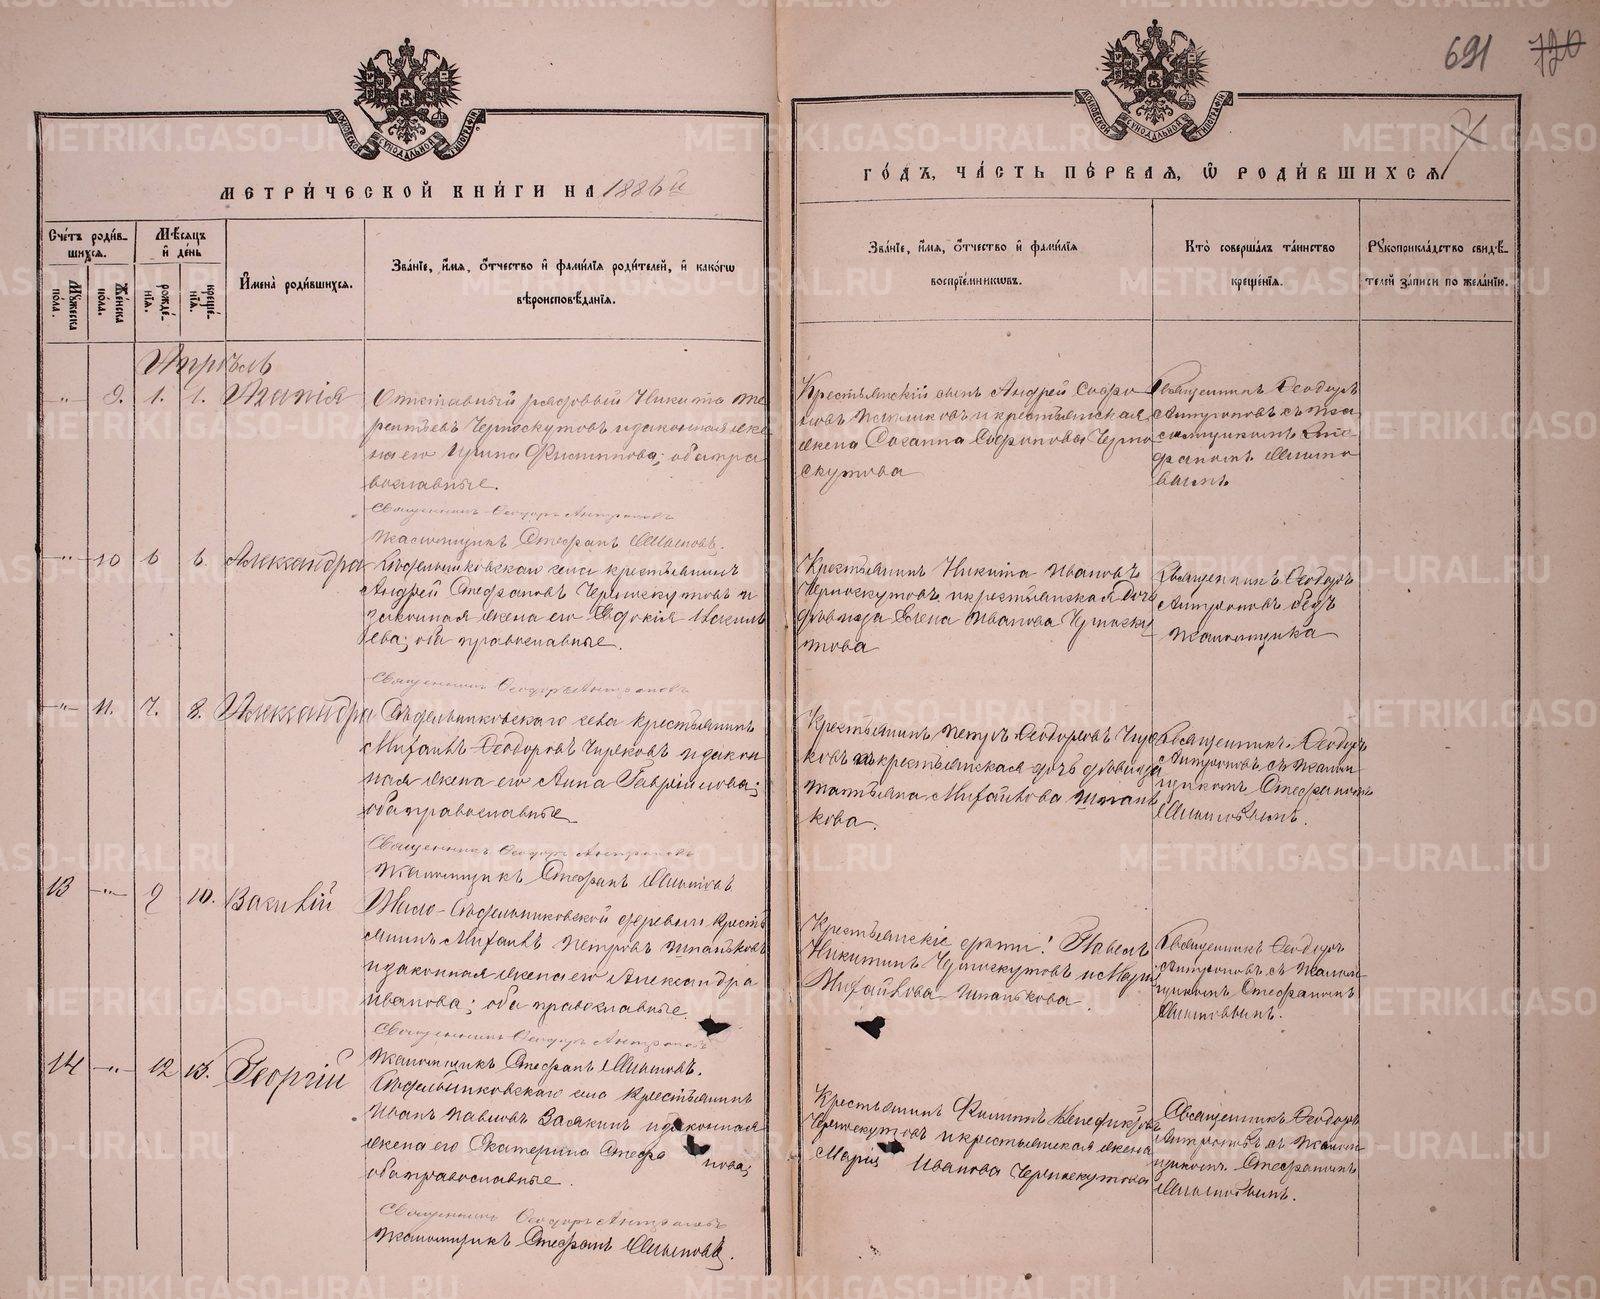 691 720
МОСКОВСКОЙ СѴНОДАЛЬНОЙ ТИПОГРАФІИ
МОСКОВСКОЙ СѴНОДАЛЬНОЙ ТИПОГРАФІИ
МЕТРИ́ЧЕСКОЙ КНИ́ГИ НА 1886й
ГО́ДЪ, ЧА́СТЬ ПЕ́РВАЯ, Ѽ РОДИ́ВШИХСЯ
Сче́тъ роди́в-
шихся.
Му́жеска по́ла.
Же́нска по́ла.
Мѣ́сяцъ и де́нь
рожде́нія.
креще́нія.
Имена̀ роди́вшихся.
Зва́ніе, и́мя, о́тчество и фами́лія роди́телей, и како́гѡ
вѣроисповѣ́данія.
Зва́ніе, и́мя, о́тчество и фами́лія
воспріе́мниковъ.
Кто̀ соверша́лъ та́инство
креще́нія.
Рукоприкла́дство свидѣ́-
телей за́писи по жела́нію.
Апрѣль
" 9. 1. 1. Агапія
Отставный рядовый Никита Те-
рентьевъ Черноскутовъ и законная же-
на его Ирина Филиппова; оба пра-
вославные.
Священникъ Ѳеодоръ Антроповъ
Псаломщикъ Стефанъ
Крестьянскій сынъ Андрей Софро-
новъ и крестьянская
жена Сосанна Софронова Черно
скутова
Священникъ Ѳеодоръ
Антроповъ съ Пса
ломщикомъ Сте-
фаномъ
" 10 6 6. Александра
Сѣдельниковскаго села крестьянинъ
Андрей Стефановъ Черноскутовъ и
законная жена его Евдокія Василь
ева; оба православные.
Священникъ Ѳеодоръ Антроповъ
Крестьянинъ Никита Ивановъ
Черноскутовъ и крестьянская дочь
дѣвица Елена Иванова Черноску
това
Священникъ Ѳеодоръ
Антроповъ безъ
Псаломщика
" 11. 7. 8. Александра
Сѣдельниковскаго села крестьянинъ
Михаилъ Ѳеодоровъ Чирковъ и закон
ная жена его Анна Гавриилова;
оба православные
Священникъ Ѳеодоръ Антроповъ
Псаломщикъ Стефанъ
Крестьянинъ Петръ Ѳеодоровъ Чир
ковъ и крестьянская дочь дѣвица
Татьяна Михайлова Шпань
кова.
Священникъ Ѳеодоръ
Антроповъ съ Псалом
щикомъ Стефаномъ
13 " 9 10. Василій
Мало-Сѣдельниковской деревни кресть
янинъ Михаилъ Петровъ Шпаньковъ
и законная жена его Александра
Иванова; оба православные.
Священникъ Ѳеодоръ Антроповъ
Псаломщикъ Стефанъ
Крестьянскіе дѣти: Павелъ
Никитинъ Черноскутовъ и Марія
Михайлова Шпанькова.
Священникъ Ѳеодоръ
Антроповъ съ Псалом
щикомъ Стефаномъ
14 " 12 13. Георгій
Сѣдельниковскаго села крестьянинъ
Иванъ Павловъ и законная
жена его Екатерина Стефа нова;
оба православные.
Священникъ Ѳеодоръ Антроповъ
Псаломщикъ Стефанъ
Крестьянинъ Филиппъ
Черноскутовъ и крестьянская жена
Марія Иванова Черноскутова
Священникъ Ѳеодоръ
Антроповъ съ Псалом
щикомъ Стефаномъ
METRIKI.GASO-URAL.RU